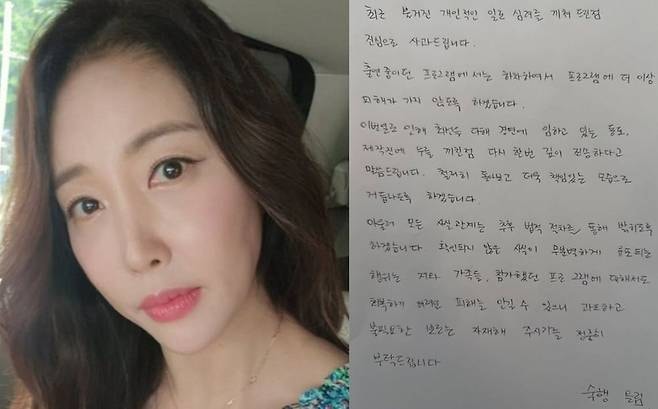 최근 불거진 개인적인 일로 심려를 끼쳐 드린점
진심으로 사과드립니다.
출연 중이던 프로그램에서는 하차하여서 프로그램에 더 이상
피해가 가지 않도록 하겠습니다.
이번일로 인해 최선을 다해 경연에 임하고 있는 동료,
제작진에 누를 끼친점 다시 한번 깊이 죄송하다고
말씀드립니다. 철저히 돌아보고 더욱 책임있는 모습으로
거듭나도록 하겠습니다.
아울러 모든 사실 관계는 추후 법적 절차를 통해 밝히도록
하겠습니다 확인되지 않은 사실이 무분별하게 유포되는
행위는 저와 가족들, 참가했던 프로그램에 대해서도
회복하기 어려운 피해를 안길 수 있으니 과도하고
불필요한 보도는 자제해 주시기를 정중히
부탁드립니다
숙행 드림